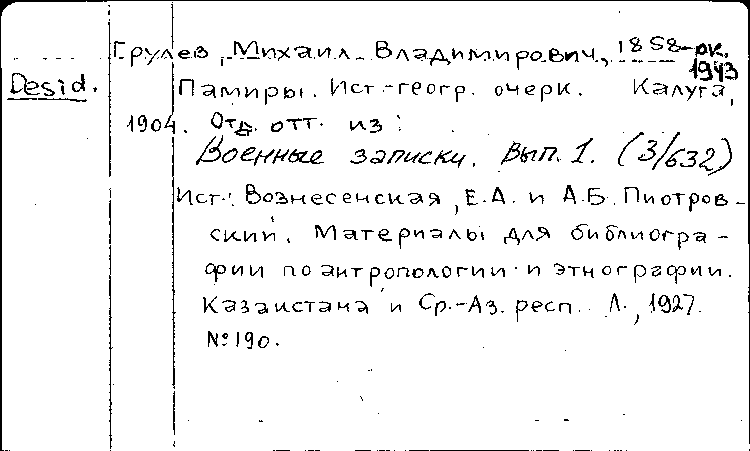 Грулев, Михаил Владимирович, 1858-ок. 1943
Desid.
Памиры. Ист.-геогр. очерк. Калуга,
1904. Отд. отт. из:
Военные записки. Вып. 1. (3/632)
Ист.: Вознесенская, Е.А. и А.Б. Пиотров-
ский. Материалы для библиогра-
фии по антропологии и этнографии.
Казакстана и Ср.-Аз. респ. Л., 1927.
№190.